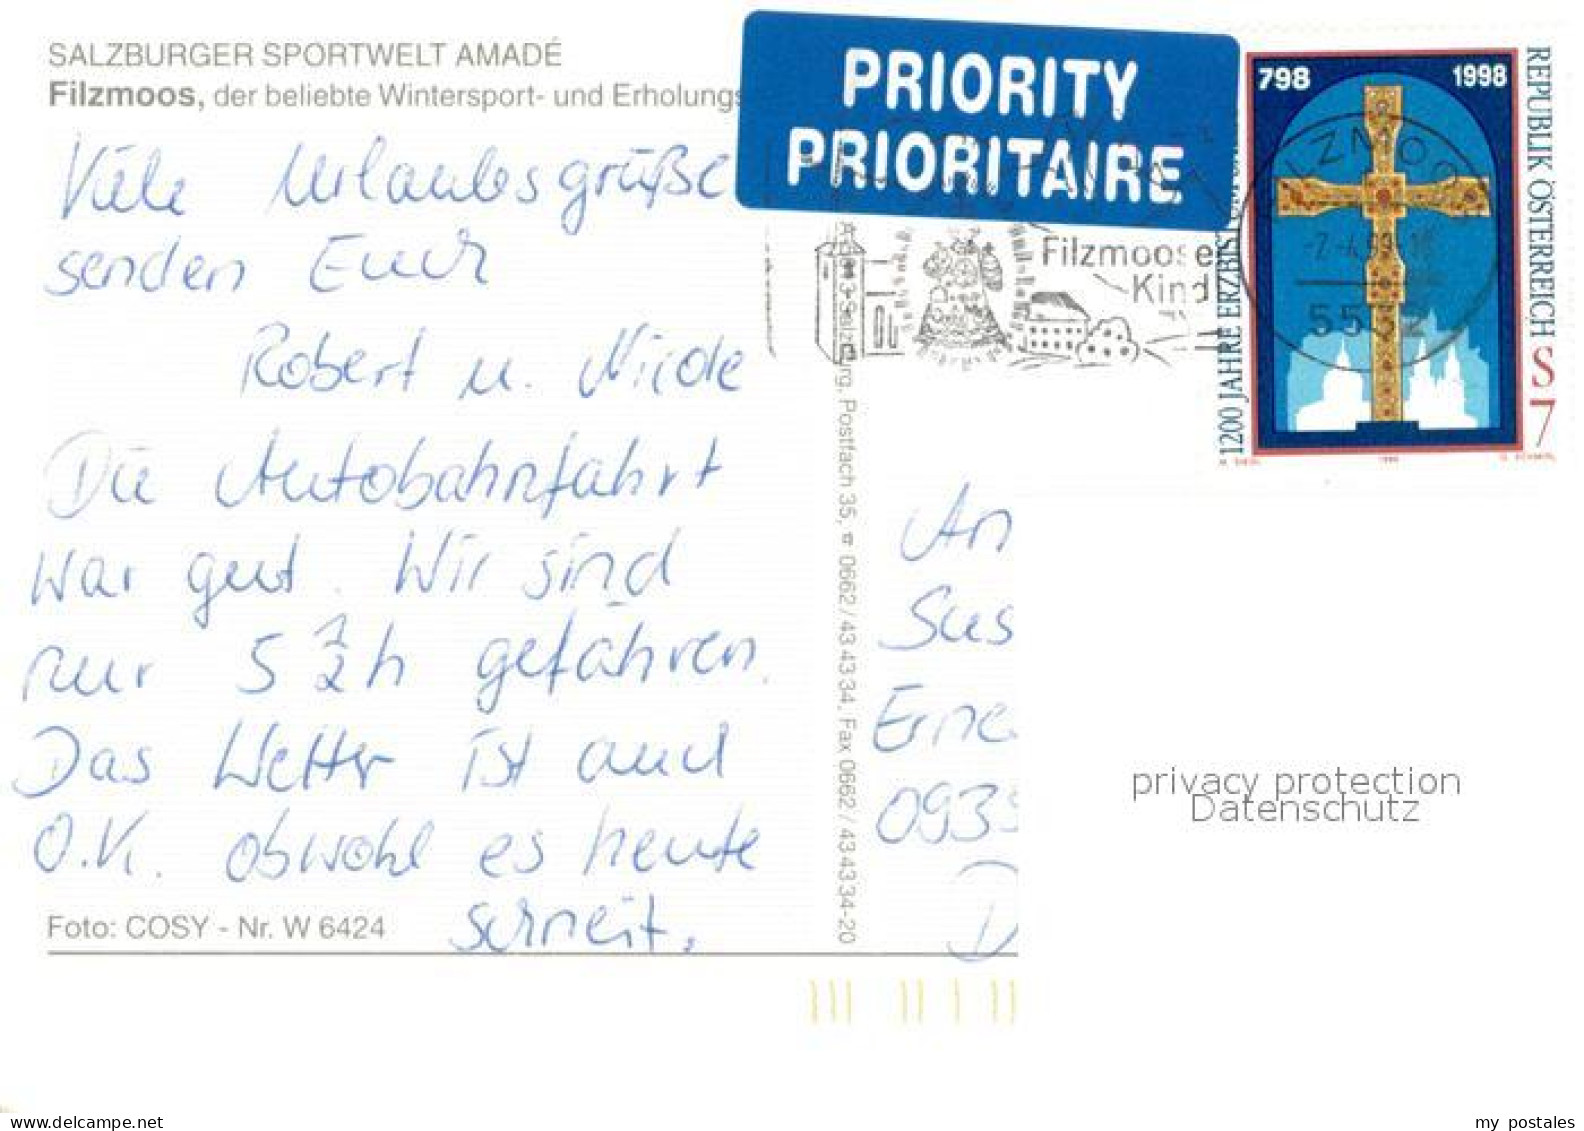 SALZBURGER SPORTWELT AMADÉ
Filzmoos, der beliebte Wintersport- und Erholungs
PRIORITY
PRIORITAIRE
Viele Urlaubsgrüße
senden Euch
Robert u. Nicole
Die Autobahnfahrt
war gut. Wir sind
nur 5 1/2 h gefahren.
Das Wetter ist auch
O.K. obwohl es heute
schneit.
Foto: COSY - Nr. W 6424
Salzburg, Postfach 35, 0662/43 43 34, Fax 0662/43 43 34-20
Filzmoose
Kind
FILZMOOS
5532
798
1998
1200 JAHRE ERZBISTUM
REPUBLIK ÖSTERREICH
S 7
1998
An
Sus
Erne
093
D
privacy protection
Datenschutz
my-postcard.delcampe.net
my postales